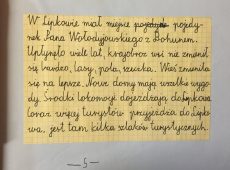 W Lipkowie miał miejsce pojedy-
nek Pana Wołodyjowskiego z Bohunem.
Upłynęło wiele lat, krajobraz wsi nie zmienił
się bardzo, lasy, pola, rzeczka. Wieś zmieniła
się na lepsze. Nowe domy mają wszelkie wygo-
dy. Środki lokomocji dojeżdżają do Lipkowa
coraz więcej turystów przyjeżdża do Lipko-
wa, jest tam kilka szlaków turystycznych.
— 5 —